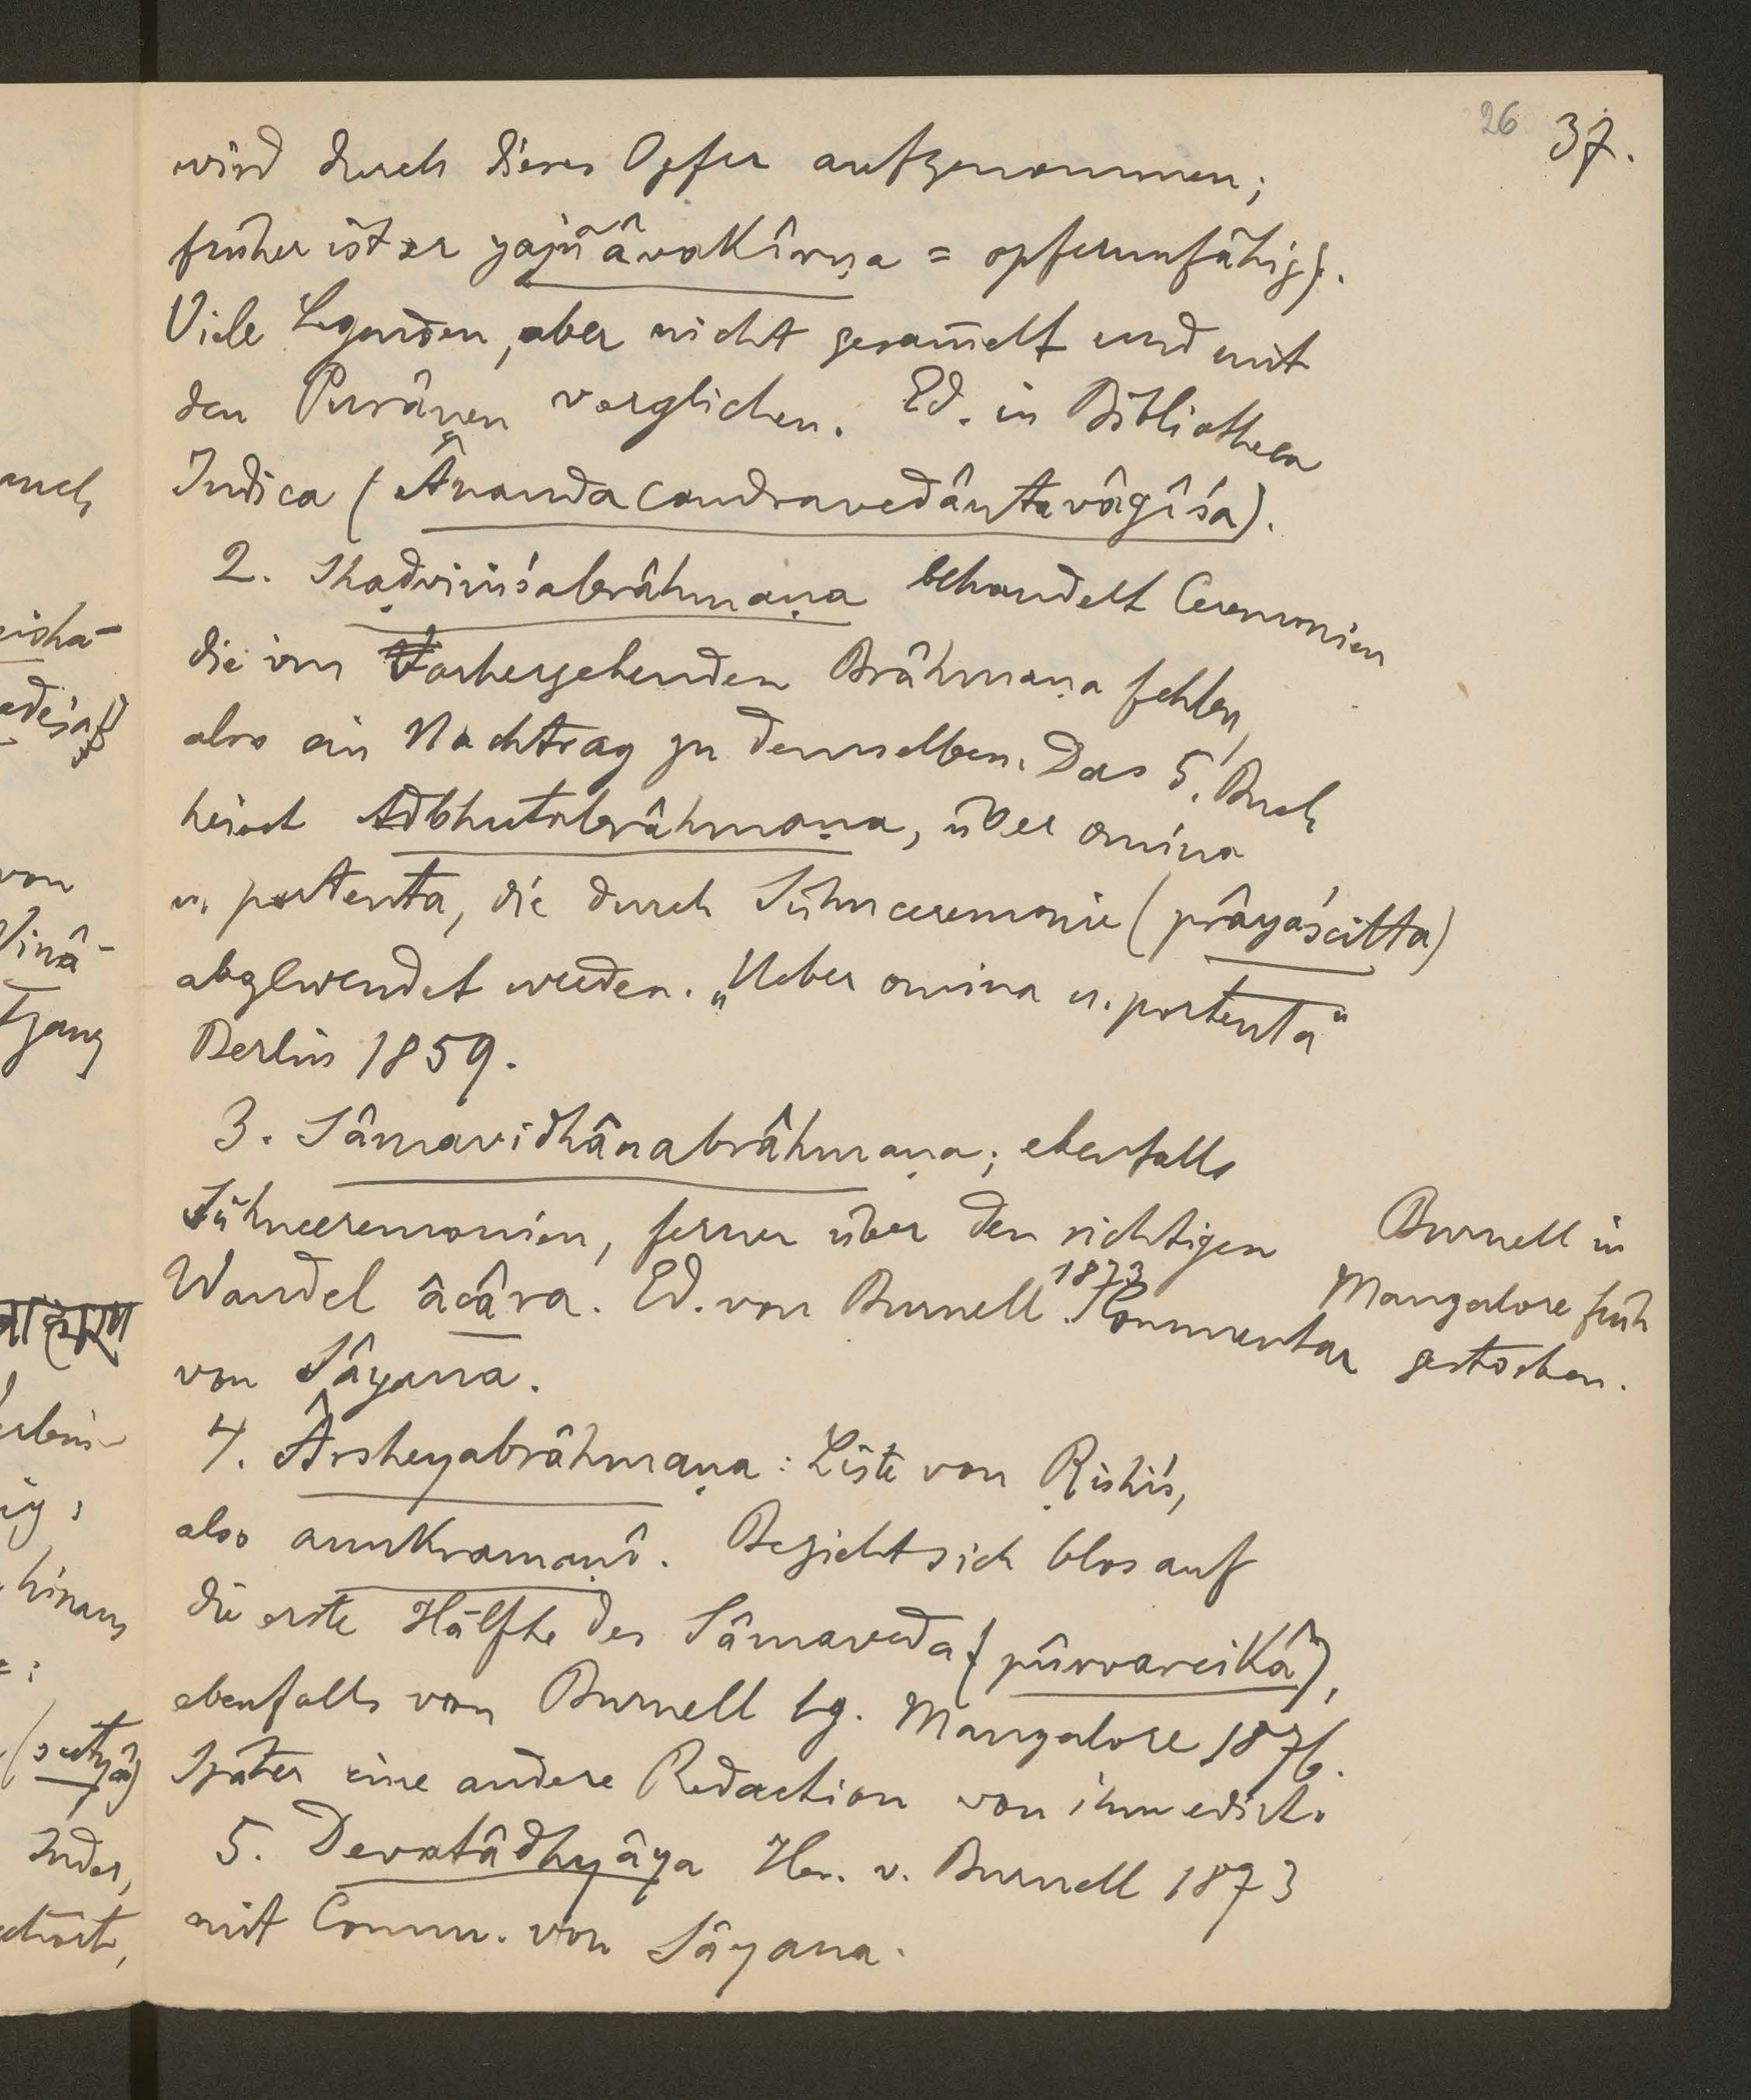 26 37.
wird durch dieses Opfer aufgenommen;
früher ist er yajñâvakîrṇa = opferunfähig).
Viele Legenden, aber nicht gesam̄elt und mit
den Purâṇen verglichen. Ed. in Bibliotheca
Indica (Ânandacandravedântavâgîśa).
2. Shaḍviṁśabrâhmaṇa behandelt Ceremonien
die im Vorhergehenden Brâhmaṇa fehlen,
also ein Nachtrag zu demselben. Das 5. Buch
heisst Adbhutabrâhmaṇa, über omina
u. portenta, die durch Sühnceremonie (prâyaścitta)
abgewendet werden. „Ueber omina u. portenta“
Berlin 1859.
3. Sâmavidhânabrâhmaṇa; ebenfalls
Sühneeremonien, ferner über den richtigen
Wandel âcâra. Ed. von Burnell 1873. Kommentar
von Sâyana.
Burnell in
Mangalore früh
gestorben.
4. Ârsheyabrâhmaṇa: Liste von Ṛishi's,
also anukramaṇî. Bezieht sich blos auf
die erste Hälfte des Sâmaveda (pûrvarcikâ),
ebenfalls von Burnell hg. Mangalore 1876.
Später eine andere Redaction von ihm edirt.
5. Devatâdhyâya Her. v. Burnell 1873
mit Comm. von Sâyana.